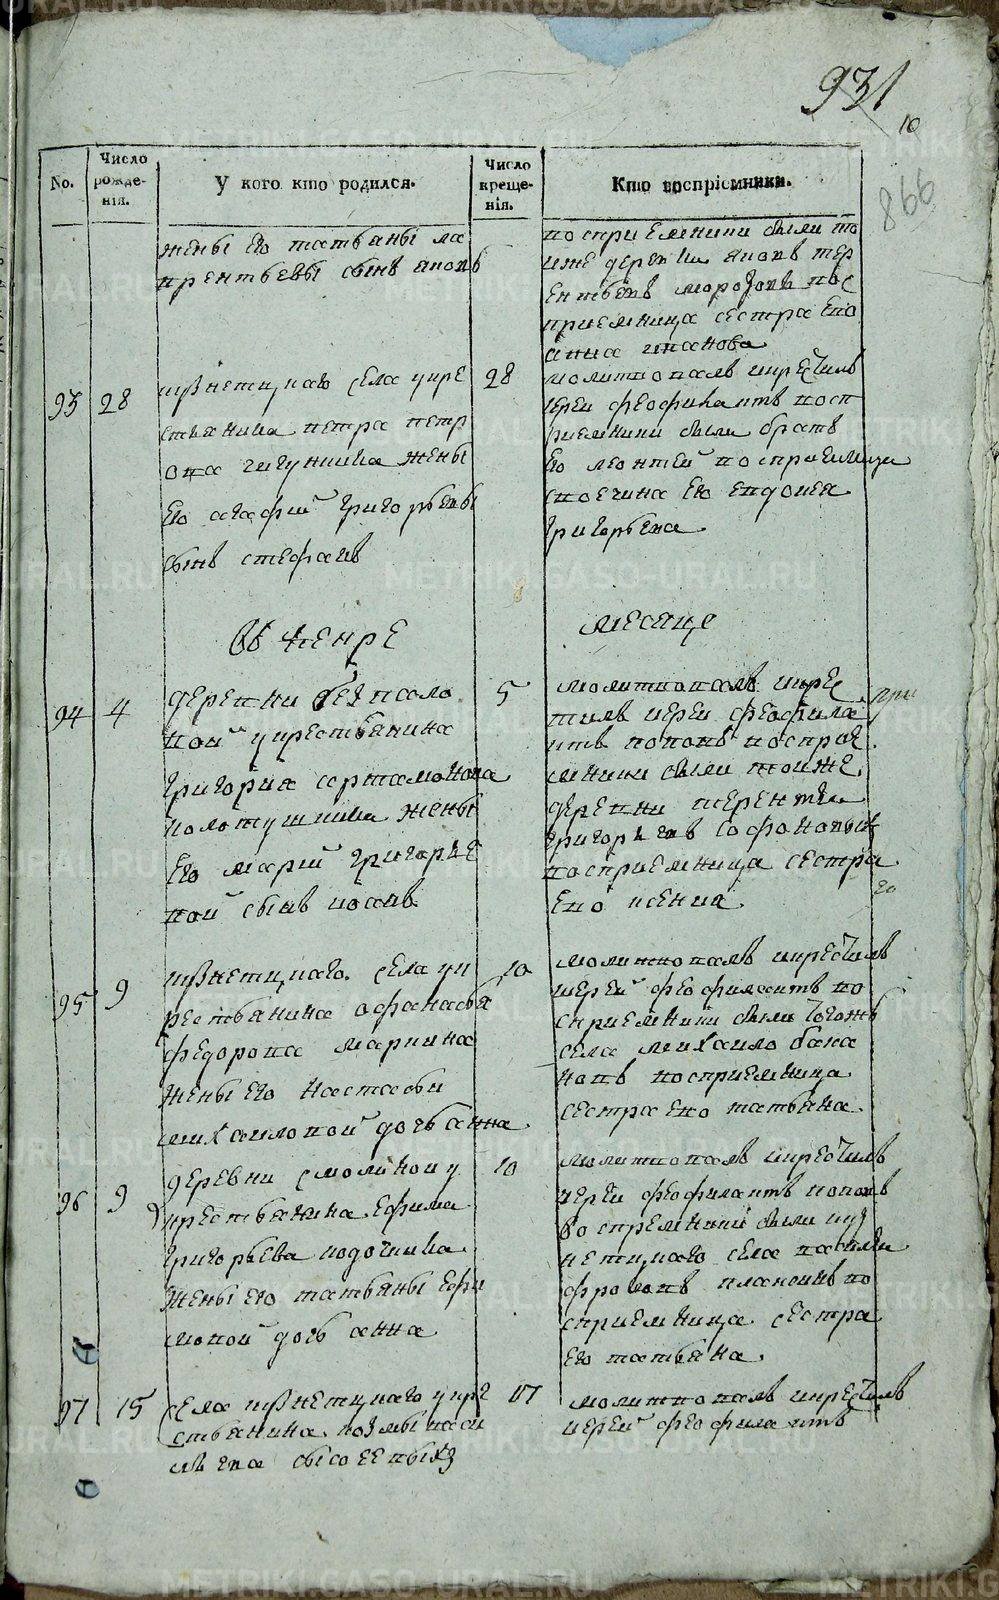 931
10
866
No.
Число рожде-нія.
У кого кто родился.
Число креще-нія.
Кто воспріемники.
жены его татьяны ла
врентьевы сынъ яковъ
восприемники были то
иже деревни яковъ тер
ентьевъ морозовъ вос
приемница сестра ево
анна иванова
93 28
кузнецкаго села укре
стьянина петра петр
ова жены
его агафии григорьевы
сынъ стефанъ
28
молитвовалъ икрестилъ
иерей феофилактъ восп
риемники были братъ
его леонтей восприемница
его евдокея
григорьева
месяце
94 4
деревни
вой укрестьянина
григория
жены
его марии григорье
вой сынъ
5
молитвовалъ икре
тилъ иерей феофила
ктъ поповъ воспрое
мники были тоиже
деревни терентеи
григорьевъ софоновыи
восприемница сестра
ево ксения
95 9
кузнецкаго села ук
рестьянина афанасья
федорова маркина
жены его настасьи
михаиловой дочь анна
10
молитвовалъ икрестилъ
иерей феофилактъ во
сприемники были тогожъ
села михаило бака
новъ восприемница
сестра ево татьяна
96 9
деревни смолиной у
крестьянина ефима
григорьева
жены его татьяны ефи
мовой дочь анна
10
молитвовалъ икрестилъ
иерей феофилактъ поповъ
воспремники были куз
нецкаго села василеи
фроловъ плановъ во
сприемница сестра
его татьяна
97 15
села кузнецкаго укре
стьянина козмы васи
льева
17
молитвовалъ икрестилъ
иерей феофилактъ
METRIKI.GASO-URAL.RU